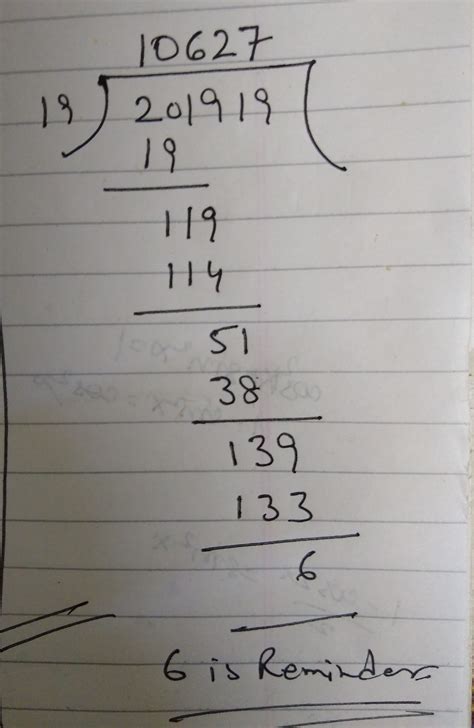 10627
19 201919
19
119
114
51
38
139
133
6
6 is Reminder